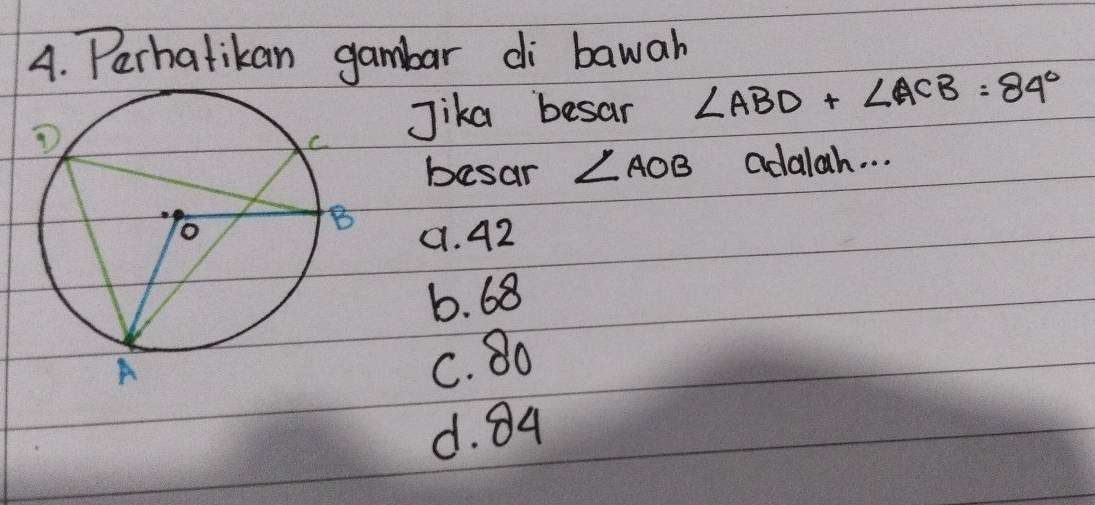 4. Perhatikan gambar di bawah
Jika besar ∠ABD + ∠ACB = 84°
besar ∠AOB adalah...
a. 42
b. 68
c. 80
d. 84
D
C
O
B
A